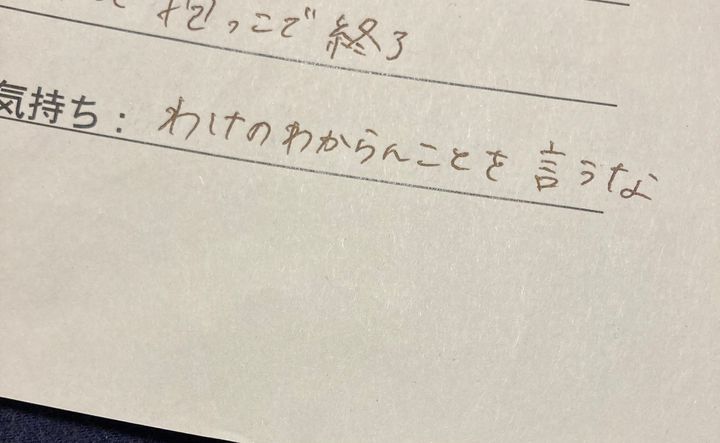 抱っこで終了
気持ち：わけのわからんことを言うな